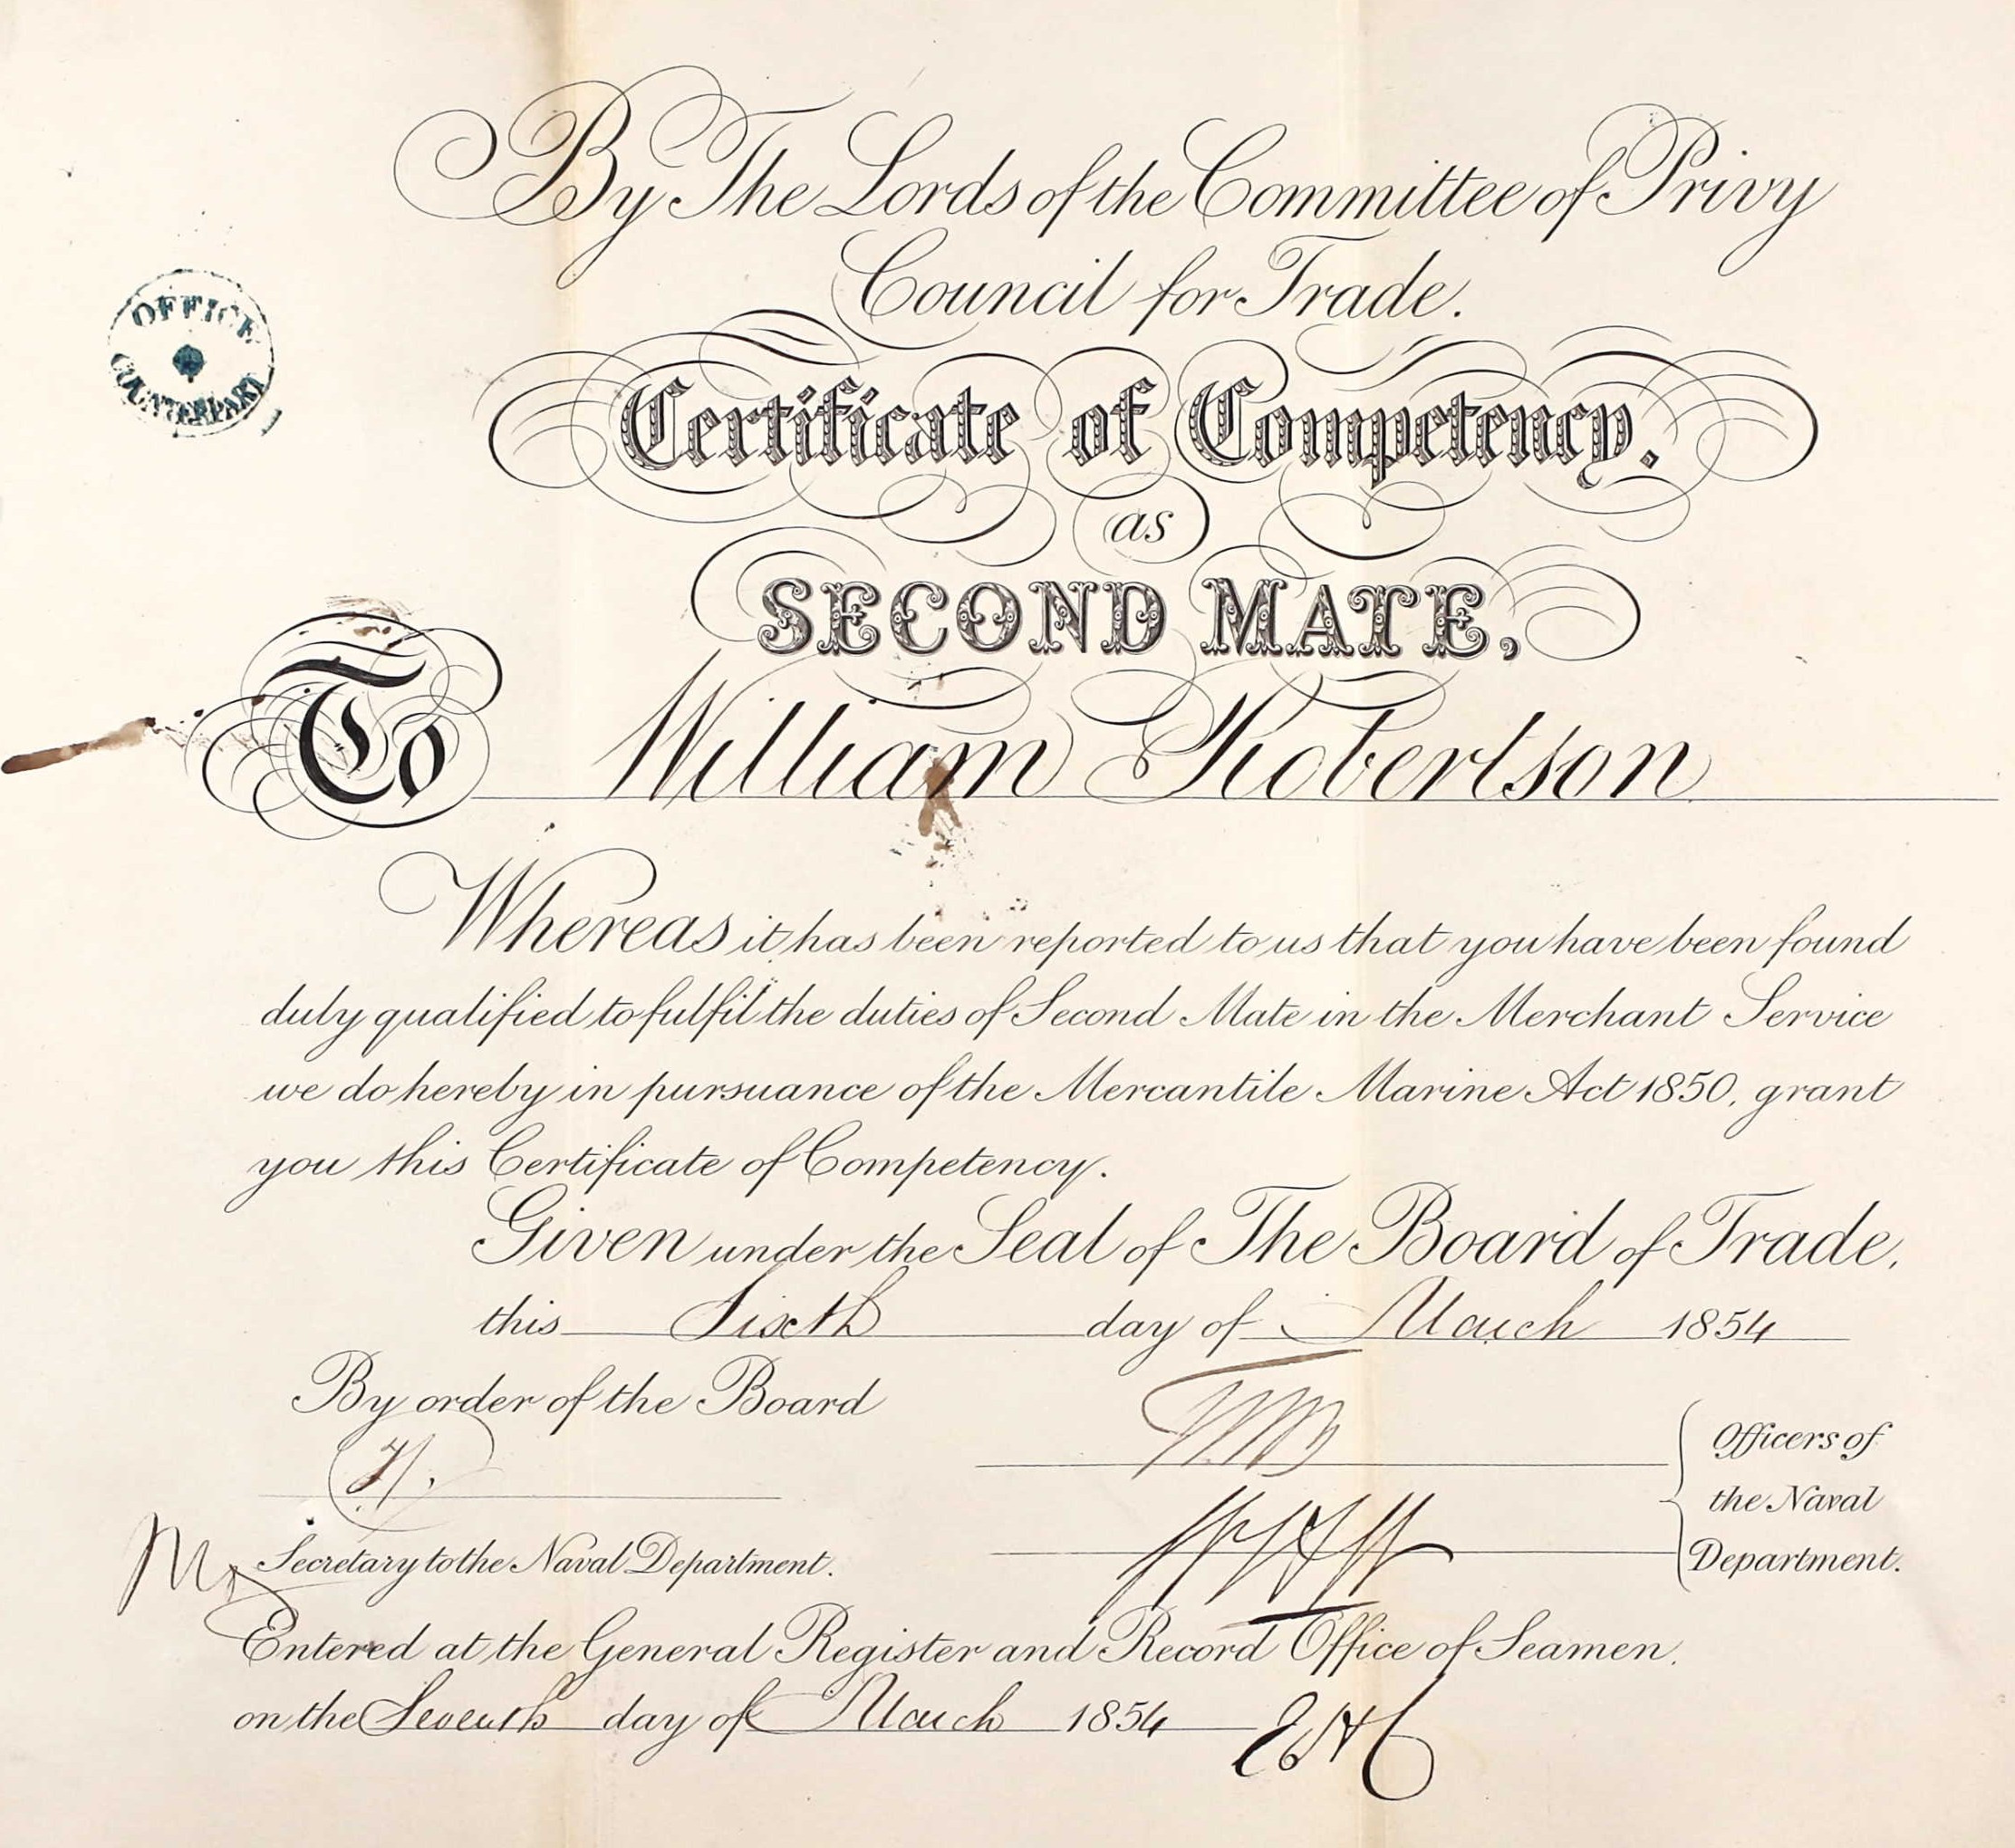 By The Lords of the Committee of Privy
Council for Trade.
OFFICE
COUNTERPART
Certificate of Competency.
as
SECOND MATE,
To William Robertson
Whereas it has been reported to us that you have been found
duly qualified to fulfil the duties of Second Mate in the Merchant Service
we do hereby in pursuance of the Mercantile Marine Act 1850, grant
you this Certificate of Competency.
Given under the Seal of The Board of Trade,
this Sixth day of March 1854
By order of the Board
Officers of
the Naval
Department.
Secretary to the Naval Department.
Entered at the General Register and Record Office of Seamen.
on the Seventh day of March 1854